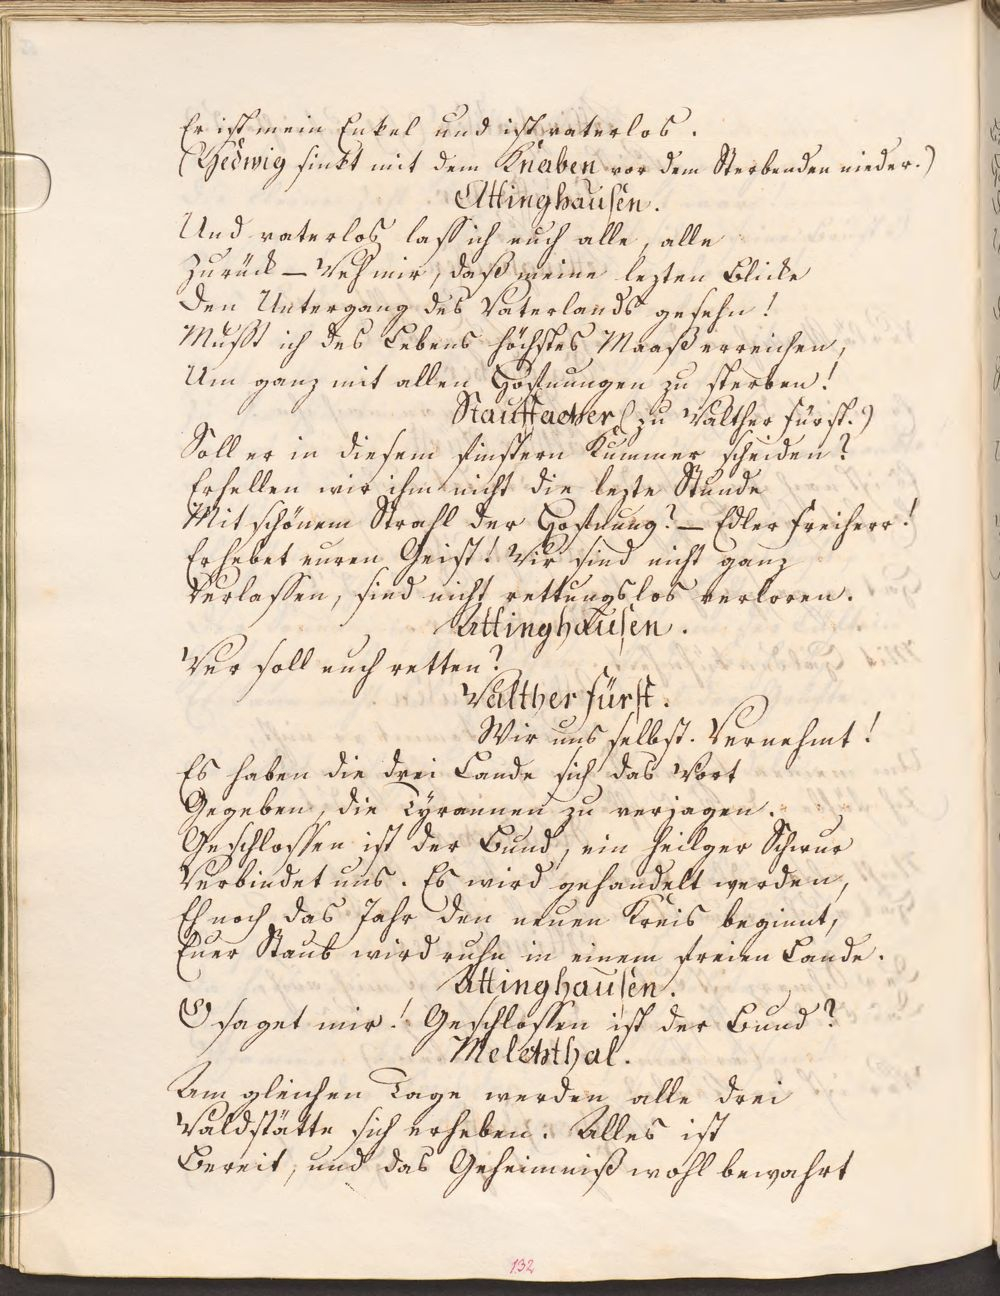 Er ist mein Enkel und ist vaterlos.
(Hedwig sinkt mit dem Knaben vor dem Sterbenden nieder.)
Attinghausen.
Und vaterlos lass ich euch alle, alle
Zurück – Weh mir, daß meine lezten Blicke
Den Untergang des Vaterlands gesehn!
Mußt ich des Lebens höchstes Maaß erreichen,
Um ganz mit allen Hofnungen zu sterben!
Stauffacher (zu Walther Fürst.)
Soll er in diesem finstern Kummer scheiden?
Erhellen wir ihm nicht die lezte Stunde
Mit schönem Strahl der Hofnung? – Edler Freiherr!
Erhebet euren Geist! Wir sind nicht ganz
Verlassen, sind nicht rettungslos verloren.
Attinghausen.
Wer soll euch retten?
Walther Fürst.
Wir uns selbst. Vernehmt!
Es haben die drei Lande sich das Wort
Gegeben, die Tyrannen zu verjagen.
Geschlossen ist der Bund, ein heilger Schwur
Verbindet uns. Es wird gehandelt werden,
Eh noch das Jahr den neuen Kreis beginnt,
Euer Staub wird ruhn in einem freien Lande.
Attinghausen.
O saget mir! Geschlossen ist der Bund?
Melchthal.
Am gleichen Tage werden alle drei
Waldstätte sich erheben. Alles ist
Bereit, und das Geheimniß wohl bewahrt
132